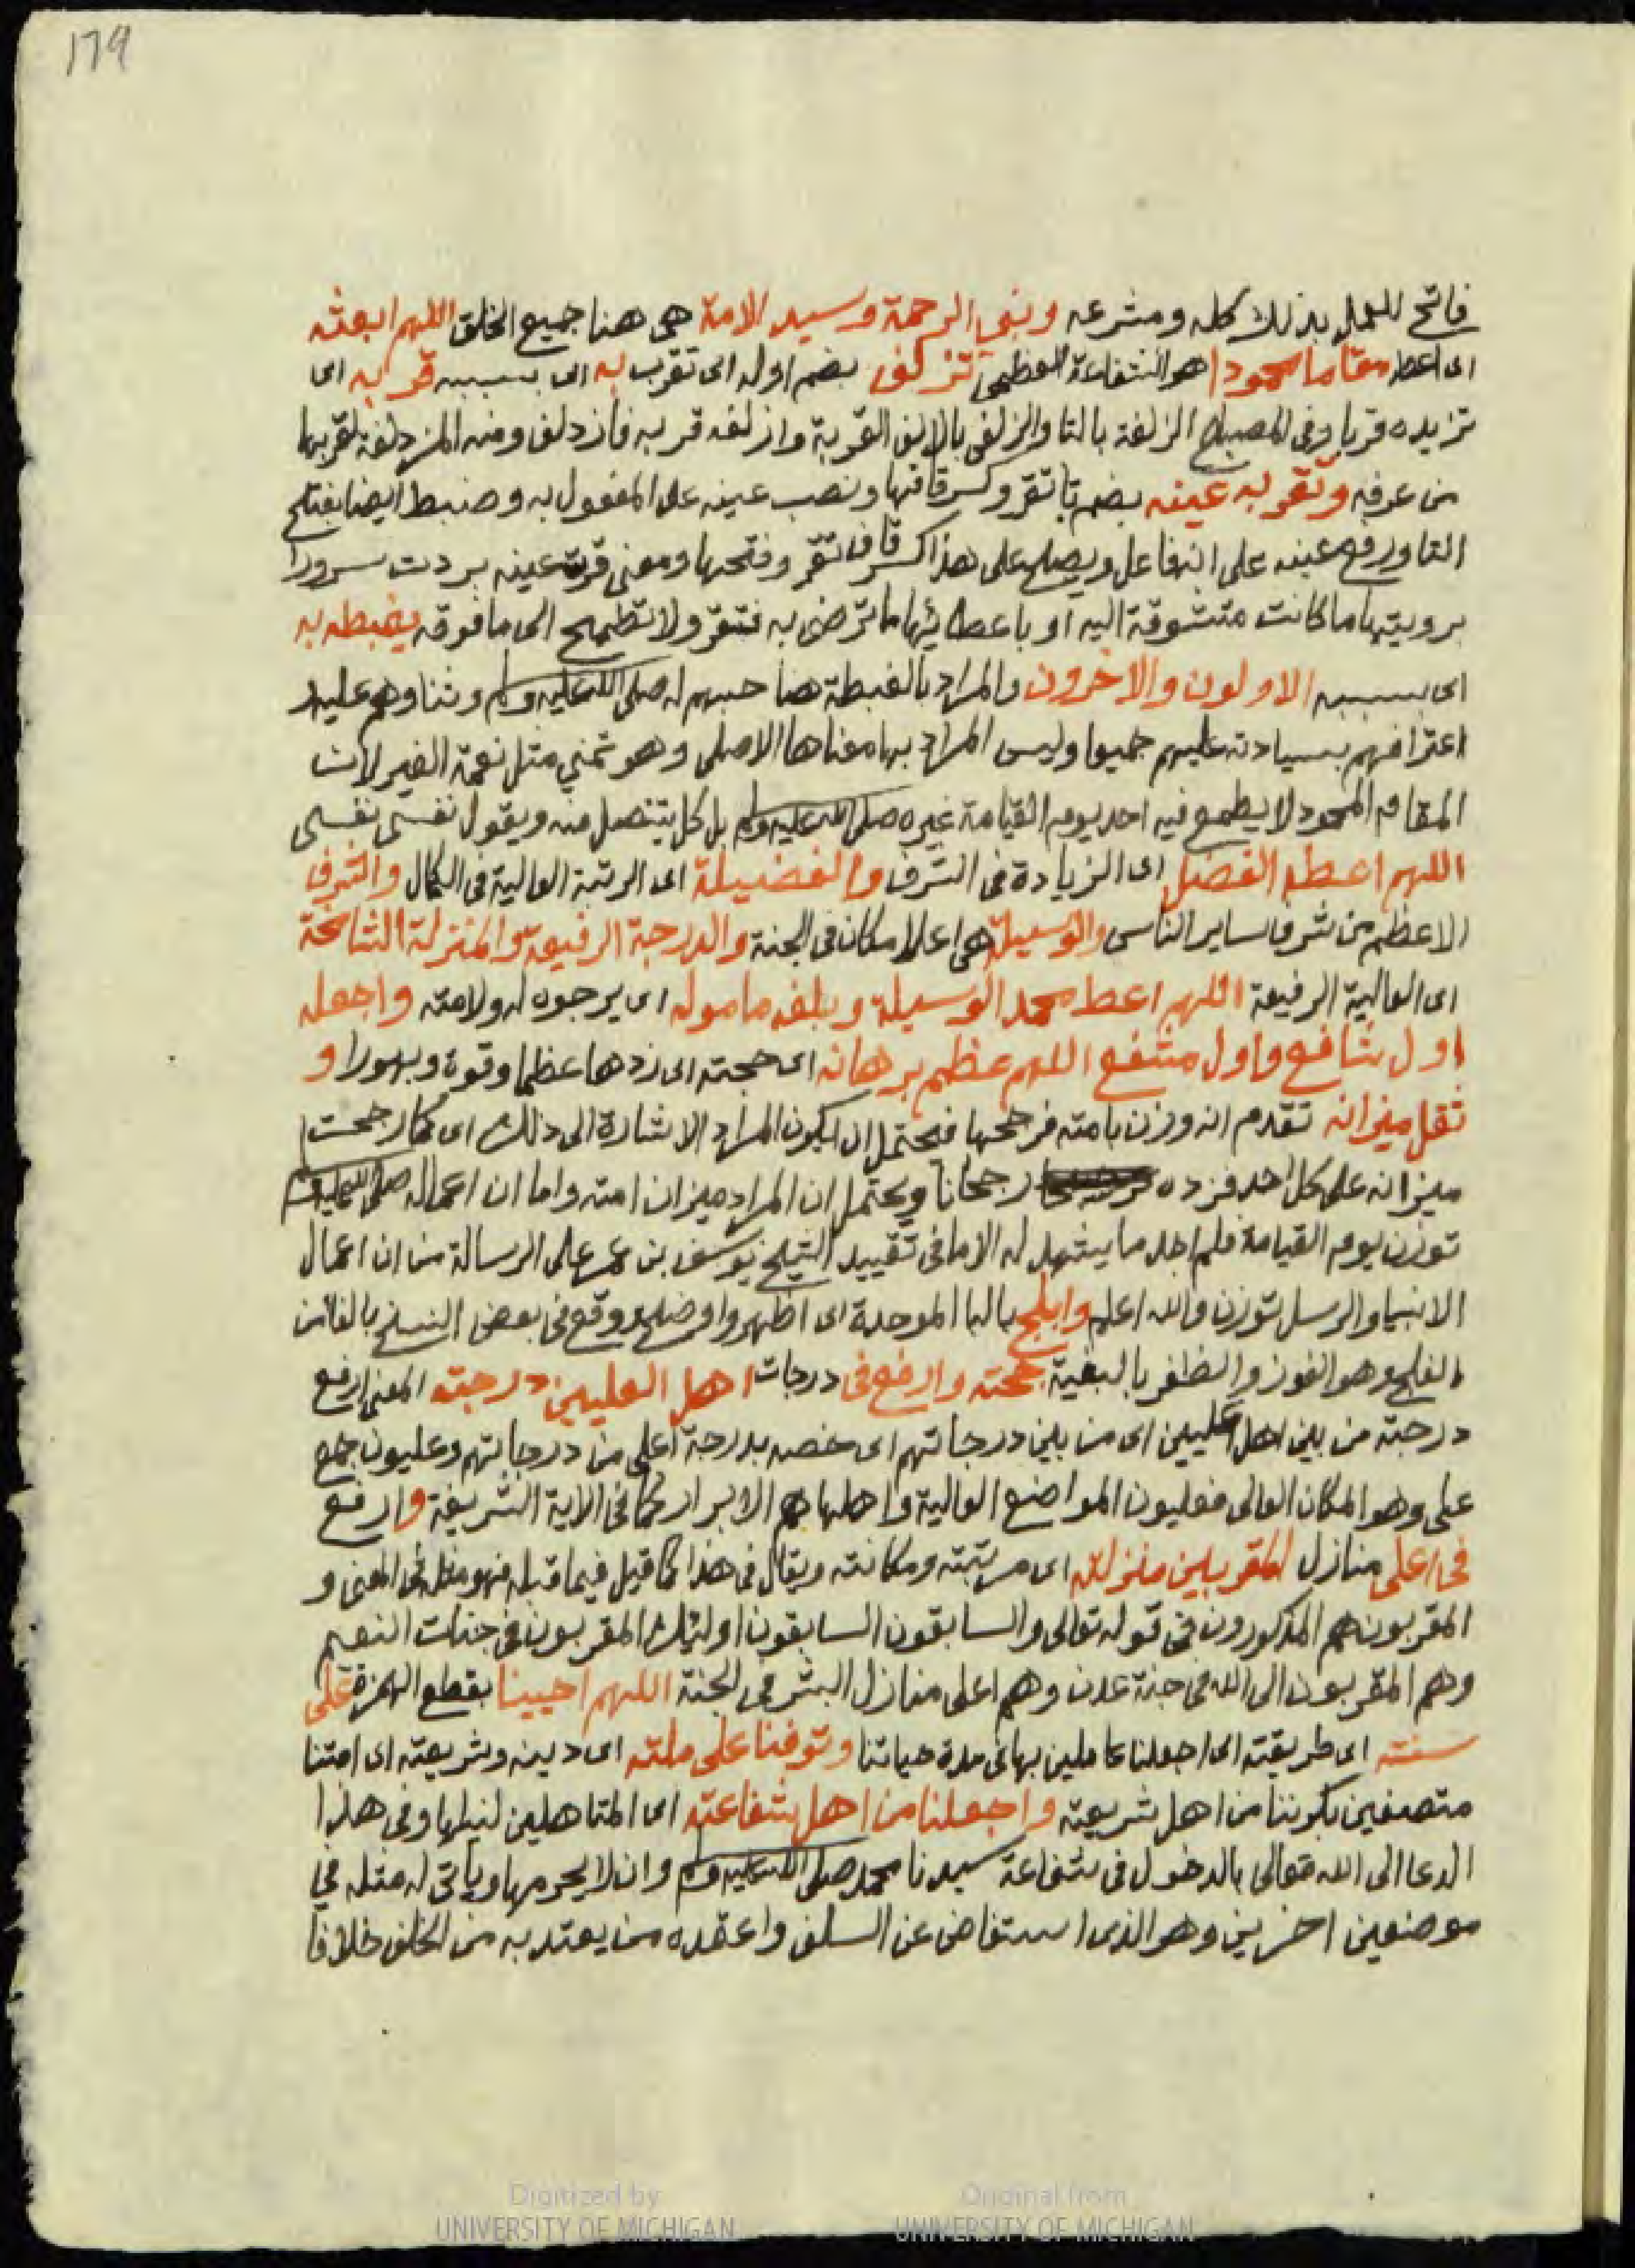 179
فاتح للعمل بذلك كله ومشرعه ونبي الرحمة وسيد الامة هى هنا جميع الخلق اللهم ابعثه
اى اعطه مقاما محمودا هو الشفاعة العظمى تزلف بضم اوله اى تقرب به اى بسببه قربه اى
تزيده قربا وفى المصباح الزلفة بالتا والزلفى بالالف القربة وازلفه قربه فازدلف ومنه المزدلفة لقربها
من عرفه وتقر به عينه بضم تا تقر وكسر قافها ونصب عينه على المفعول به وضبط ايضا بفتح
التا ورفع عينه على انها فاعل ويصلح على هذا كسر قاف تقر وفتحها ومعنى قرت عينه بردت سرورا
برويتها ما كانت متشوقة اليه او باعطائها ما ترضى به فتقر ولا تطمح الى ما فوقه يغبطه به
اى بسببه الاولون والاخرون والمراد بالغبطة هنا حبهم له صلى الله عليه وسلم وثناوهم عليه و
اعترافهم بسيادته عليهم جميعا وليس المراد بها معناها الاصلى وهو تمني مثل نعمة الغير لان
المقام المحمود لا يطمع فيه احد يوم القيامة غيره صلى الله عليه وسلم بل كل يتنصل منه ويقول نفسى نفسى
اللهم اعطه الفضل اى الزيادة فى الشرف والفضيلة اى الرتبة العالية فى الكمال والشرف
الاعظم من شرف ساير الناس والوسيلة هى اعلا مكان فى الجنة والدرجة الرفيعة والمنزلة الشامخة
اى العالية الرفيعة اللهم اعط محمد الوسيلة وبلغه ماموله اى يرجوه له ولامته واجعله
اول شافع واول مشفع اللهم عظم برهانه اى حجته اى زدها عظما وقوة وبهورا و
ثقل ميزانه تقدم انه وزن بامته فرجحها فيحتمل ان يكون المراد الاشارة الى ذلك اى كما رجحت
ميزانه على كل احد فزده رجحانا ويحتمل ان المراد ميزان امته واما ان اعماله صلى الله عليه وسلم
توزن يوم القيامة فلم اجد ما يشهد له الا ما فى تقييد الشيخ يوسف بن عمر على الرسالة من ان اعمال
الانبيا والرسل توزن والله اعلم وابلج بالبا الموحدة اى اظهر واوضح ووقع فى بعض النسخ بالفا من
الفلج وهو الفوز والظفر بالبغية حجته وارفع فى درجات اهل العليين درجته المعنى ارفع
درجته من بين اهل عليين اى من بين درجاتهم اى خصه بدرجة اعلى من درجاتهم وعليون جمع
على وهو المكان العالى فعليون المواضع العالية واهلها هم الابرار كما فى الاية الشريفة وارفع
فى اعلى منازل المقربين منزلته اى مرتبته ومكانته ويقال فى هذا كما قيل فيما قبله فهو مثله فى المعنى و
المقربون هم المذكورون فى قوله تعالى والسابقون السابقون اوليك المقربون فى جنات النعيم
وهم المقربون الى الله فى جنة عدن وهم اعلى منازل البشر فى الجنة اللهم احيينا بقطع الهمزة على
سنته اى طريقته اى اجعلنا عاملين بها فى مدة حياتنا وتوفنا على ملته اى دينه وشريعته اى امتنا
متصفين بكوننا من اهل شريعته واجعلنا من اهل شفاعته اى المتاهلين لنيلها وفى هذا
الدعا الى الله تعالى بالدخول فى شفاعة سيدنا محمد صلى الله عليه وسلم وان لا يحرمها وياتى له مثله في
موضعين اخرين وهو الذى استفاض عن السلف واعتقده من يعتد به من الخلف خلافا
Digitized by
UNIVERSITY OF MICHIGAN
Original from
UNIVERSITY OF MICHIGAN